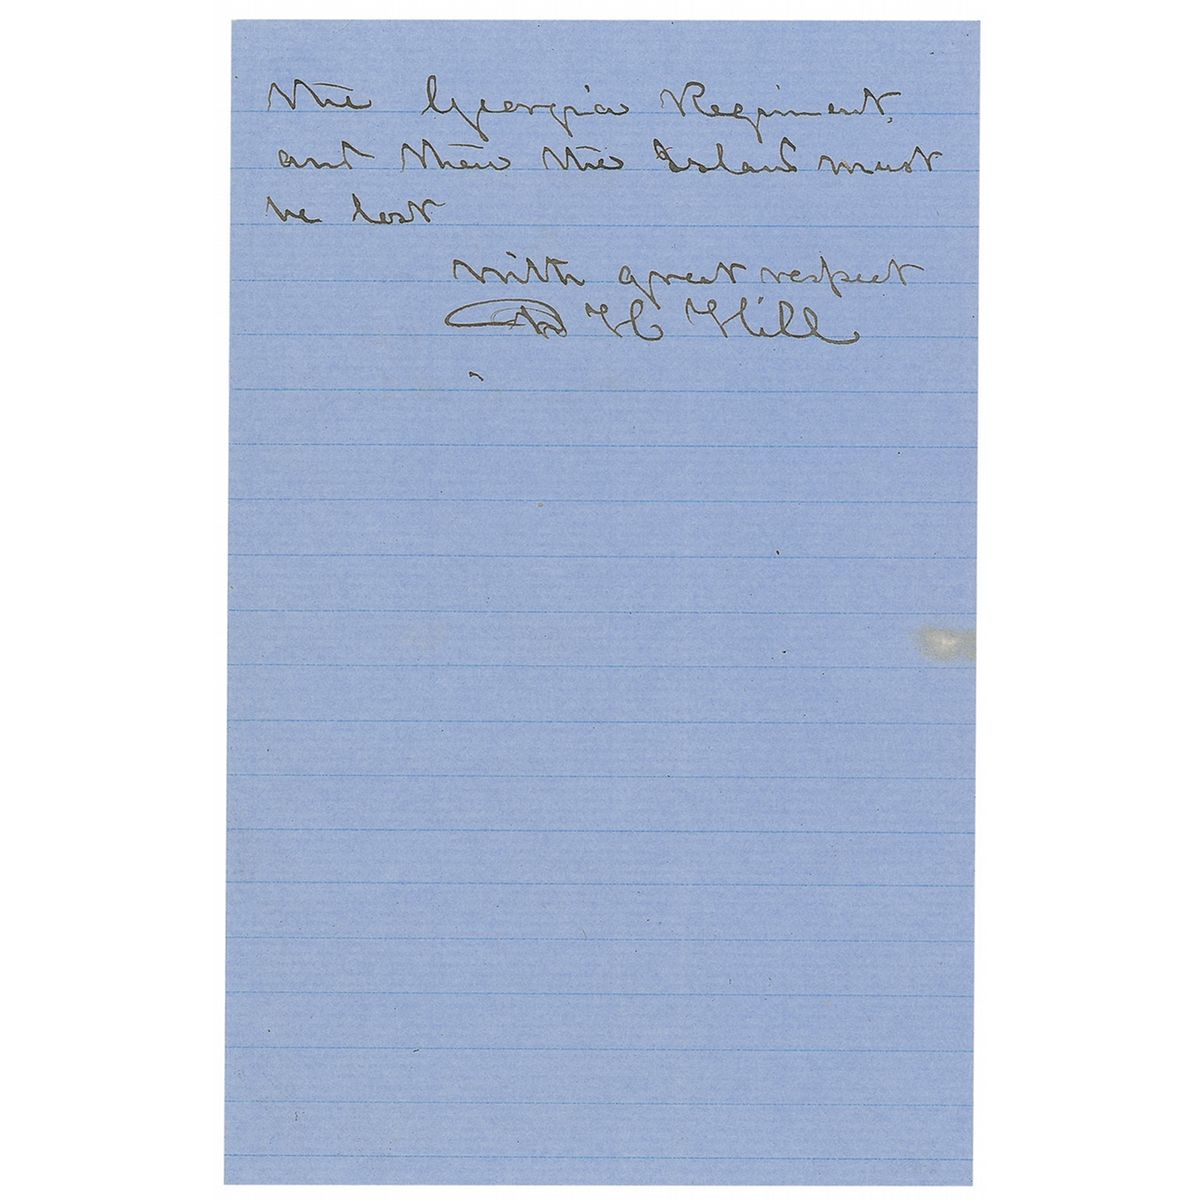 the Georgia Regiment,
and then the Island must
be lost
With great respect
D H Hill